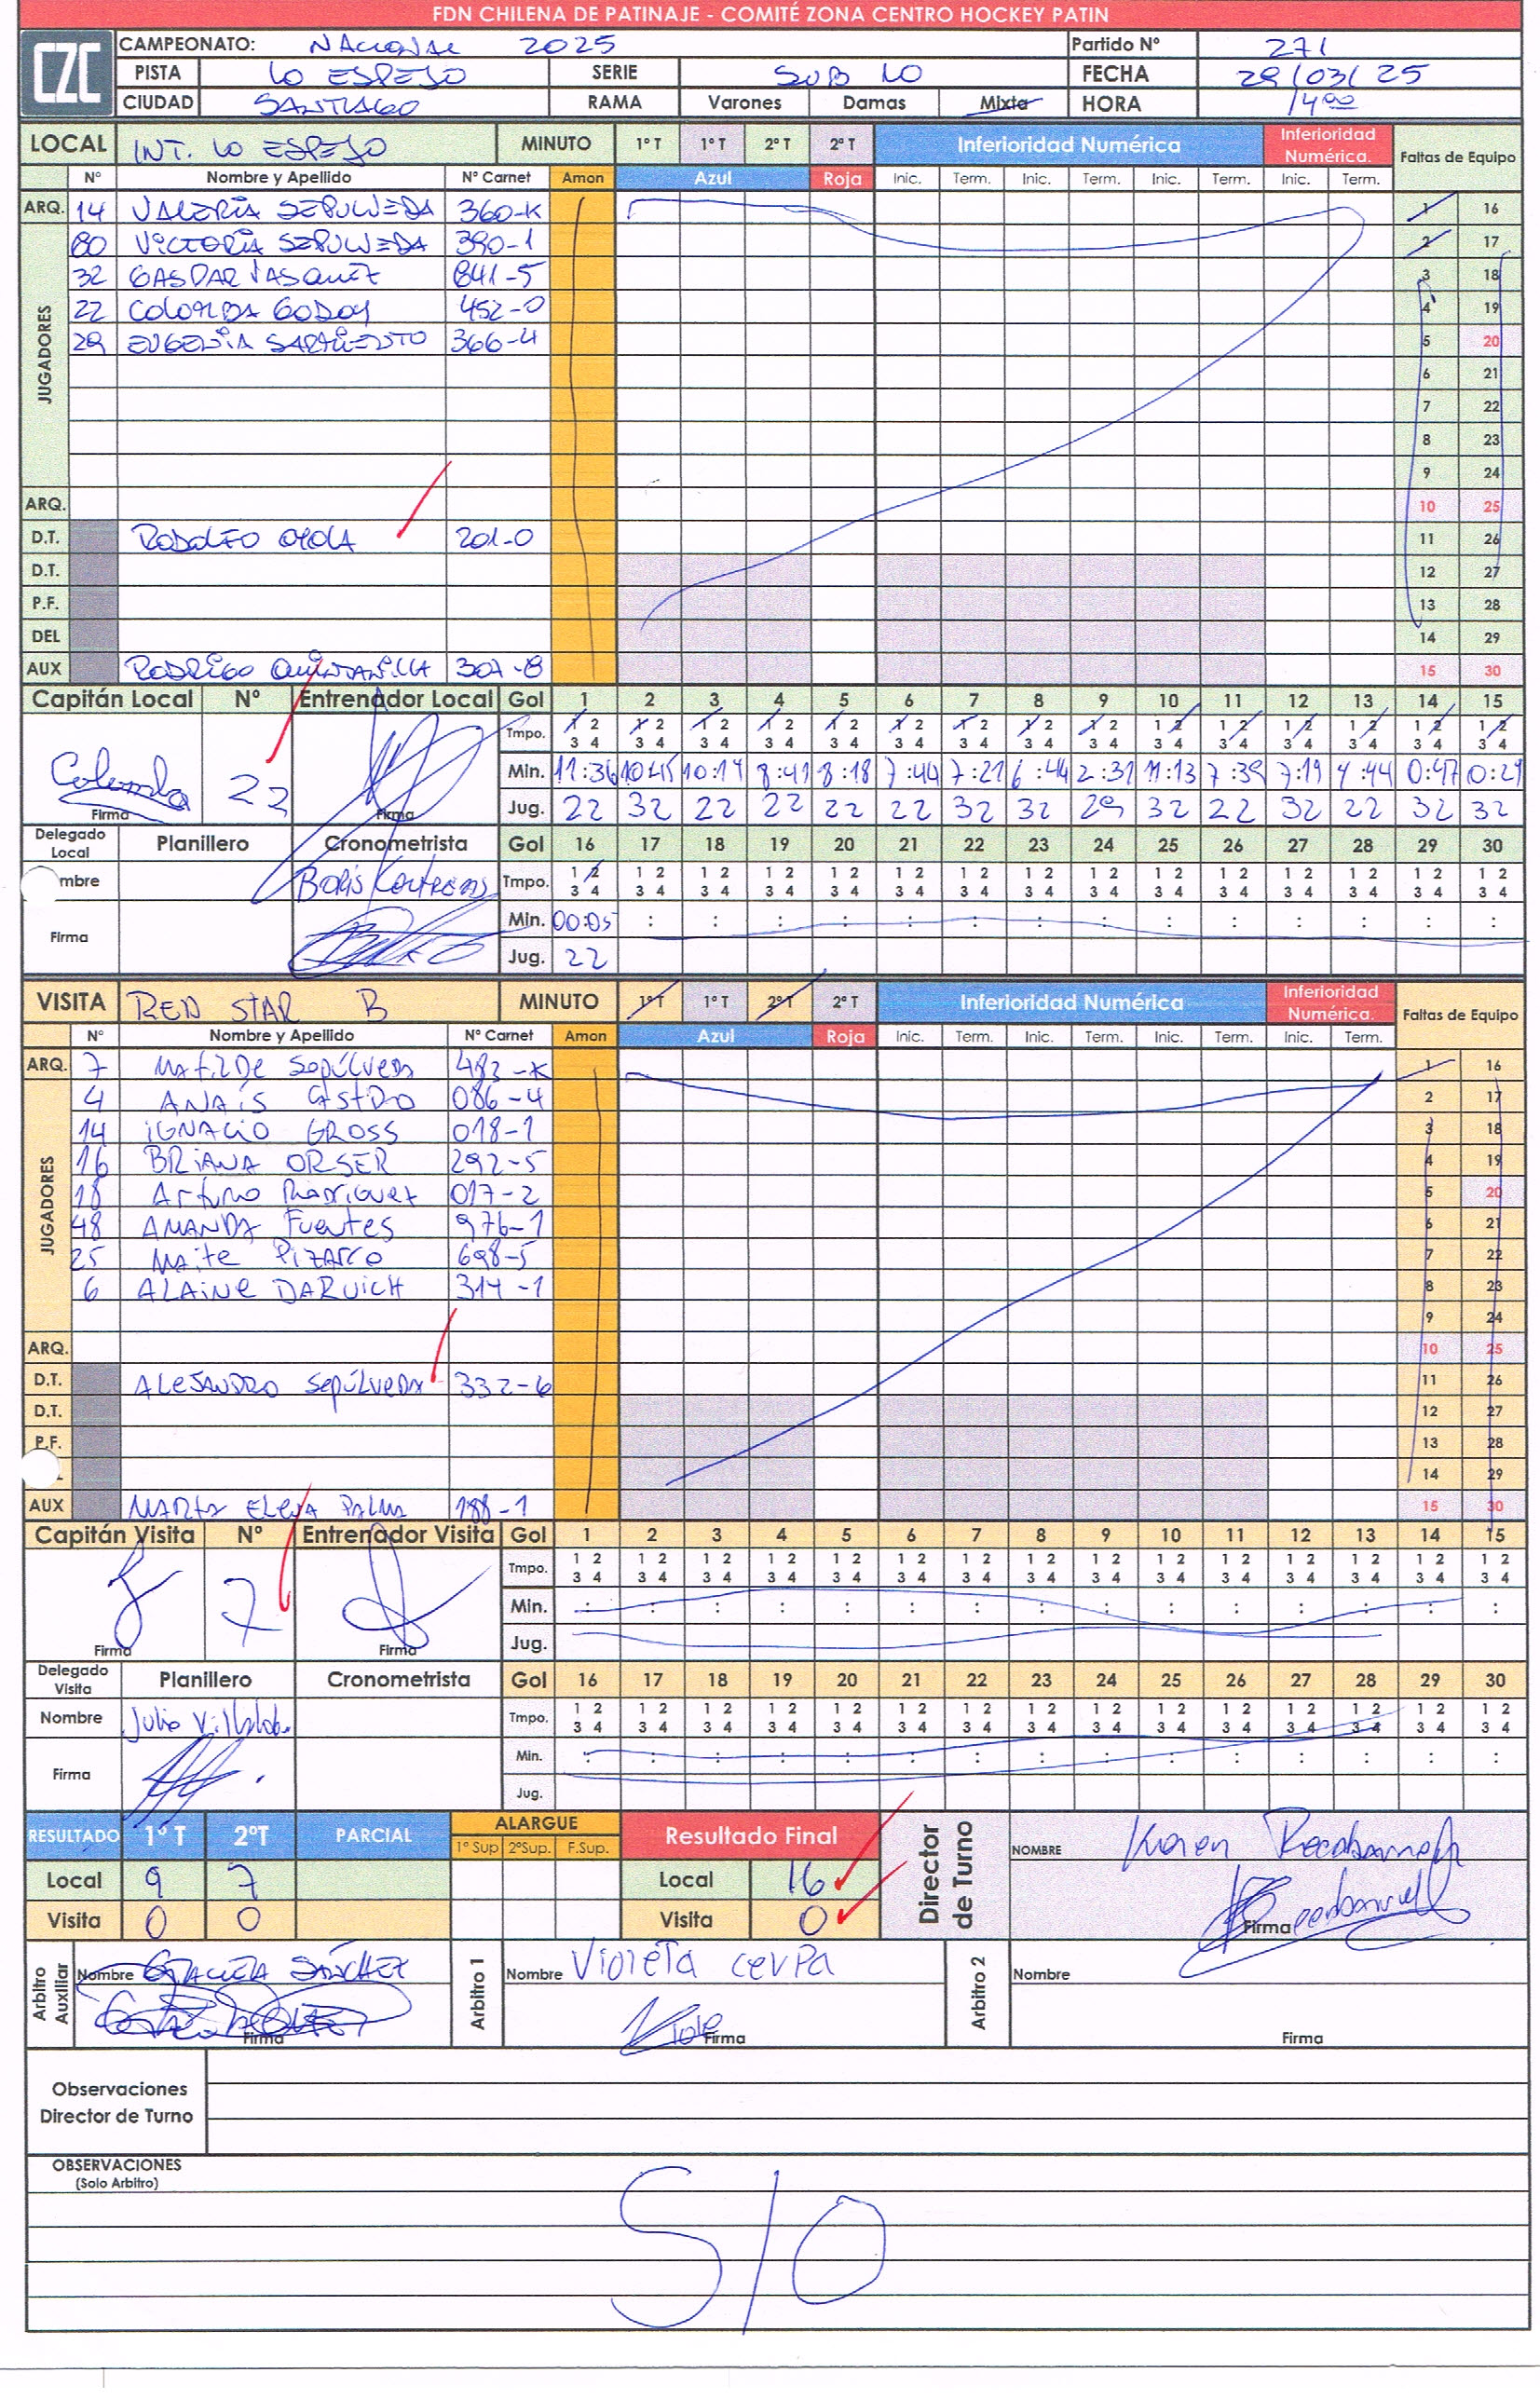 FDN CHILENA DE PATINAJE - COMITÉ ZONA CENTRO HOCKEY PATIN
CZC
CAMPEONATO: NACIONAL 2025 Partido Nº 271
PISTA LO ESPEJO SERIE SUB 10 FECHA 29/03/25
CIUDAD SANTIAGO RAMA Varones Damas Mixta HORA 14:00
LOCAL INT. LO ESPEJO MINUTO 1º T 1º T 2º T 2º T Inferioridad Numérica Inferioridad Numérica. Faltas de Equipo
Nº Nombre y Apellido Nº Carnet Amon Azul Roja Inic. Term. Inic. Term. Inic. Term. Inic. Term.
ARQ. 14 VALERIA SEPULVEDA 360-K 1 16
JUGADORES
80 VICTORIA SEPULVEDA 390-1 2 17
32 GASPAR VASQUEZ 841-5 3 18
22 COLOMBA GODOY 452-0 4 19
29 EUGENIA SARMIENTO 366-4 5 20
6 21
7 22
8 23
9 24
ARQ. 10 25
D.T. RODOLFO OYOLA 201-0 11 26
D.T. 12 27
P.F. 13 28
DEL 14 29
AUX RODRIGO QUINTANILLA 301-8 15 30
Capitán Local Nº Entrenador Local Gol 1 2 3 4 5 6 7 8 9 10 11 12 13 14 15
Tmpo. 1 2 1 2 1 2 1 2 1 2 1 2 1 2 1 2 1 2 1 2 1 2 1 2 1 2 1 2 1 2
3 4 3 4 3 4 3 4 3 4 3 4 3 4 3 4 3 4 3 4 3 4 3 4 3 4 3 4 3 4
Colomba 22 Min. 11:36 10:45 10:14 8:41 8:18 7:44 7:21 6:44 2:31 11:13 7:39 7:19 4:44 0:47 0:29
Firma Firma Jug. 22 32 22 22 22 22 32 32 29 32 22 32 22 32 32
Delegado Local Planillero Cronometrista Gol 16 17 18 19 20 21 22 23 24 25 26 27 28 29 30
mbre Boris Contreras Tmpo. 1 2 1 2 1 2 1 2 1 2 1 2 1 2 1 2 1 2 1 2 1 2 1 2 1 2 1 2 1 2
3 4 3 4 3 4 3 4 3 4 3 4 3 4 3 4 3 4 3 4 3 4 3 4 3 4 3 4 3 4
Firma Min. 00:05 : : : : : : : : : : : : : :
Jug. 22
VISITA RED STAR B MINUTO 1º T 1º T 2º T 2º T Inferioridad Numérica Inferioridad Numérica. Faltas de Equipo
Nº Nombre y Apellido Nº Carnet Amon Azul Roja Inic. Term. Inic. Term. Inic. Term. Inic. Term.
ARQ. 7 MATILDE SEPÚLVEDA 483-K 1 16
JUGADORES
4 ANAÍS CASTRO 086-4 2 17
14 IGNACIO GROSS 018-1 3 18
16 BRIANA ORSER 292-5 4 19
18 Arturo Manriquez 017-2 5 20
48 AMANDA Fuentes 976-1 6 21
25 Maite Pizarro 698-5 7 22
6 ALAINE DARUICH 314-1 8 23
9 24
ARQ. 10 25
D.T. ALEJANDRO SEPÚLVEDA 332-6 11 26
D.T. 12 27
P.F. 13 28
14 29
AUX MARTA ELENA PALMA 188-1 15 30
Capitán Visita Nº Entrenador Visita Gol 1 2 3 4 5 6 7 8 9 10 11 12 13 14 15
Tmpo. 1 2 1 2 1 2 1 2 1 2 1 2 1 2 1 2 1 2 1 2 1 2 1 2 1 2 1 2 1 2
3 4 3 4 3 4 3 4 3 4 3 4 3 4 3 4 3 4 3 4 3 4 3 4 3 4 3 4 3 4
7 Min. : : : : : : : : : : : : : : :
Firma Firma Jug.
Delegado Visita Planillero Cronometrista Gol 16 17 18 19 20 21 22 23 24 25 26 27 28 29 30
Nombre Julio Villalob. Tmpo. 1 2 1 2 1 2 1 2 1 2 1 2 1 2 1 2 1 2 1 2 1 2 1 2 1 2 1 2 1 2
3 4 3 4 3 4 3 4 3 4 3 4 3 4 3 4 3 4 3 4 3 4 3 4 3 4 3 4 3 4
Firma Min. : : : : : : : : : : : : : : :
Jug.
RESULTADO 1º T 2ºT PARCIAL ALARGUE Resultado Final Director de Turno NOMBRE Karen Recabarren
1º Sup 2ºSup. F.Sup.
Local 9 7 Local 16
Visita 0 0 Visita 0 Firma
Arbitro Auxiliar Nombre GRACIELA SÁNCHEZ Arbitro 1 Nombre Violeta cerpa Arbitro 2 Nombre
Firma Firma Firma
Observaciones
Director de Turno
OBSERVACIONES
(Solo Arbitro)
S/O